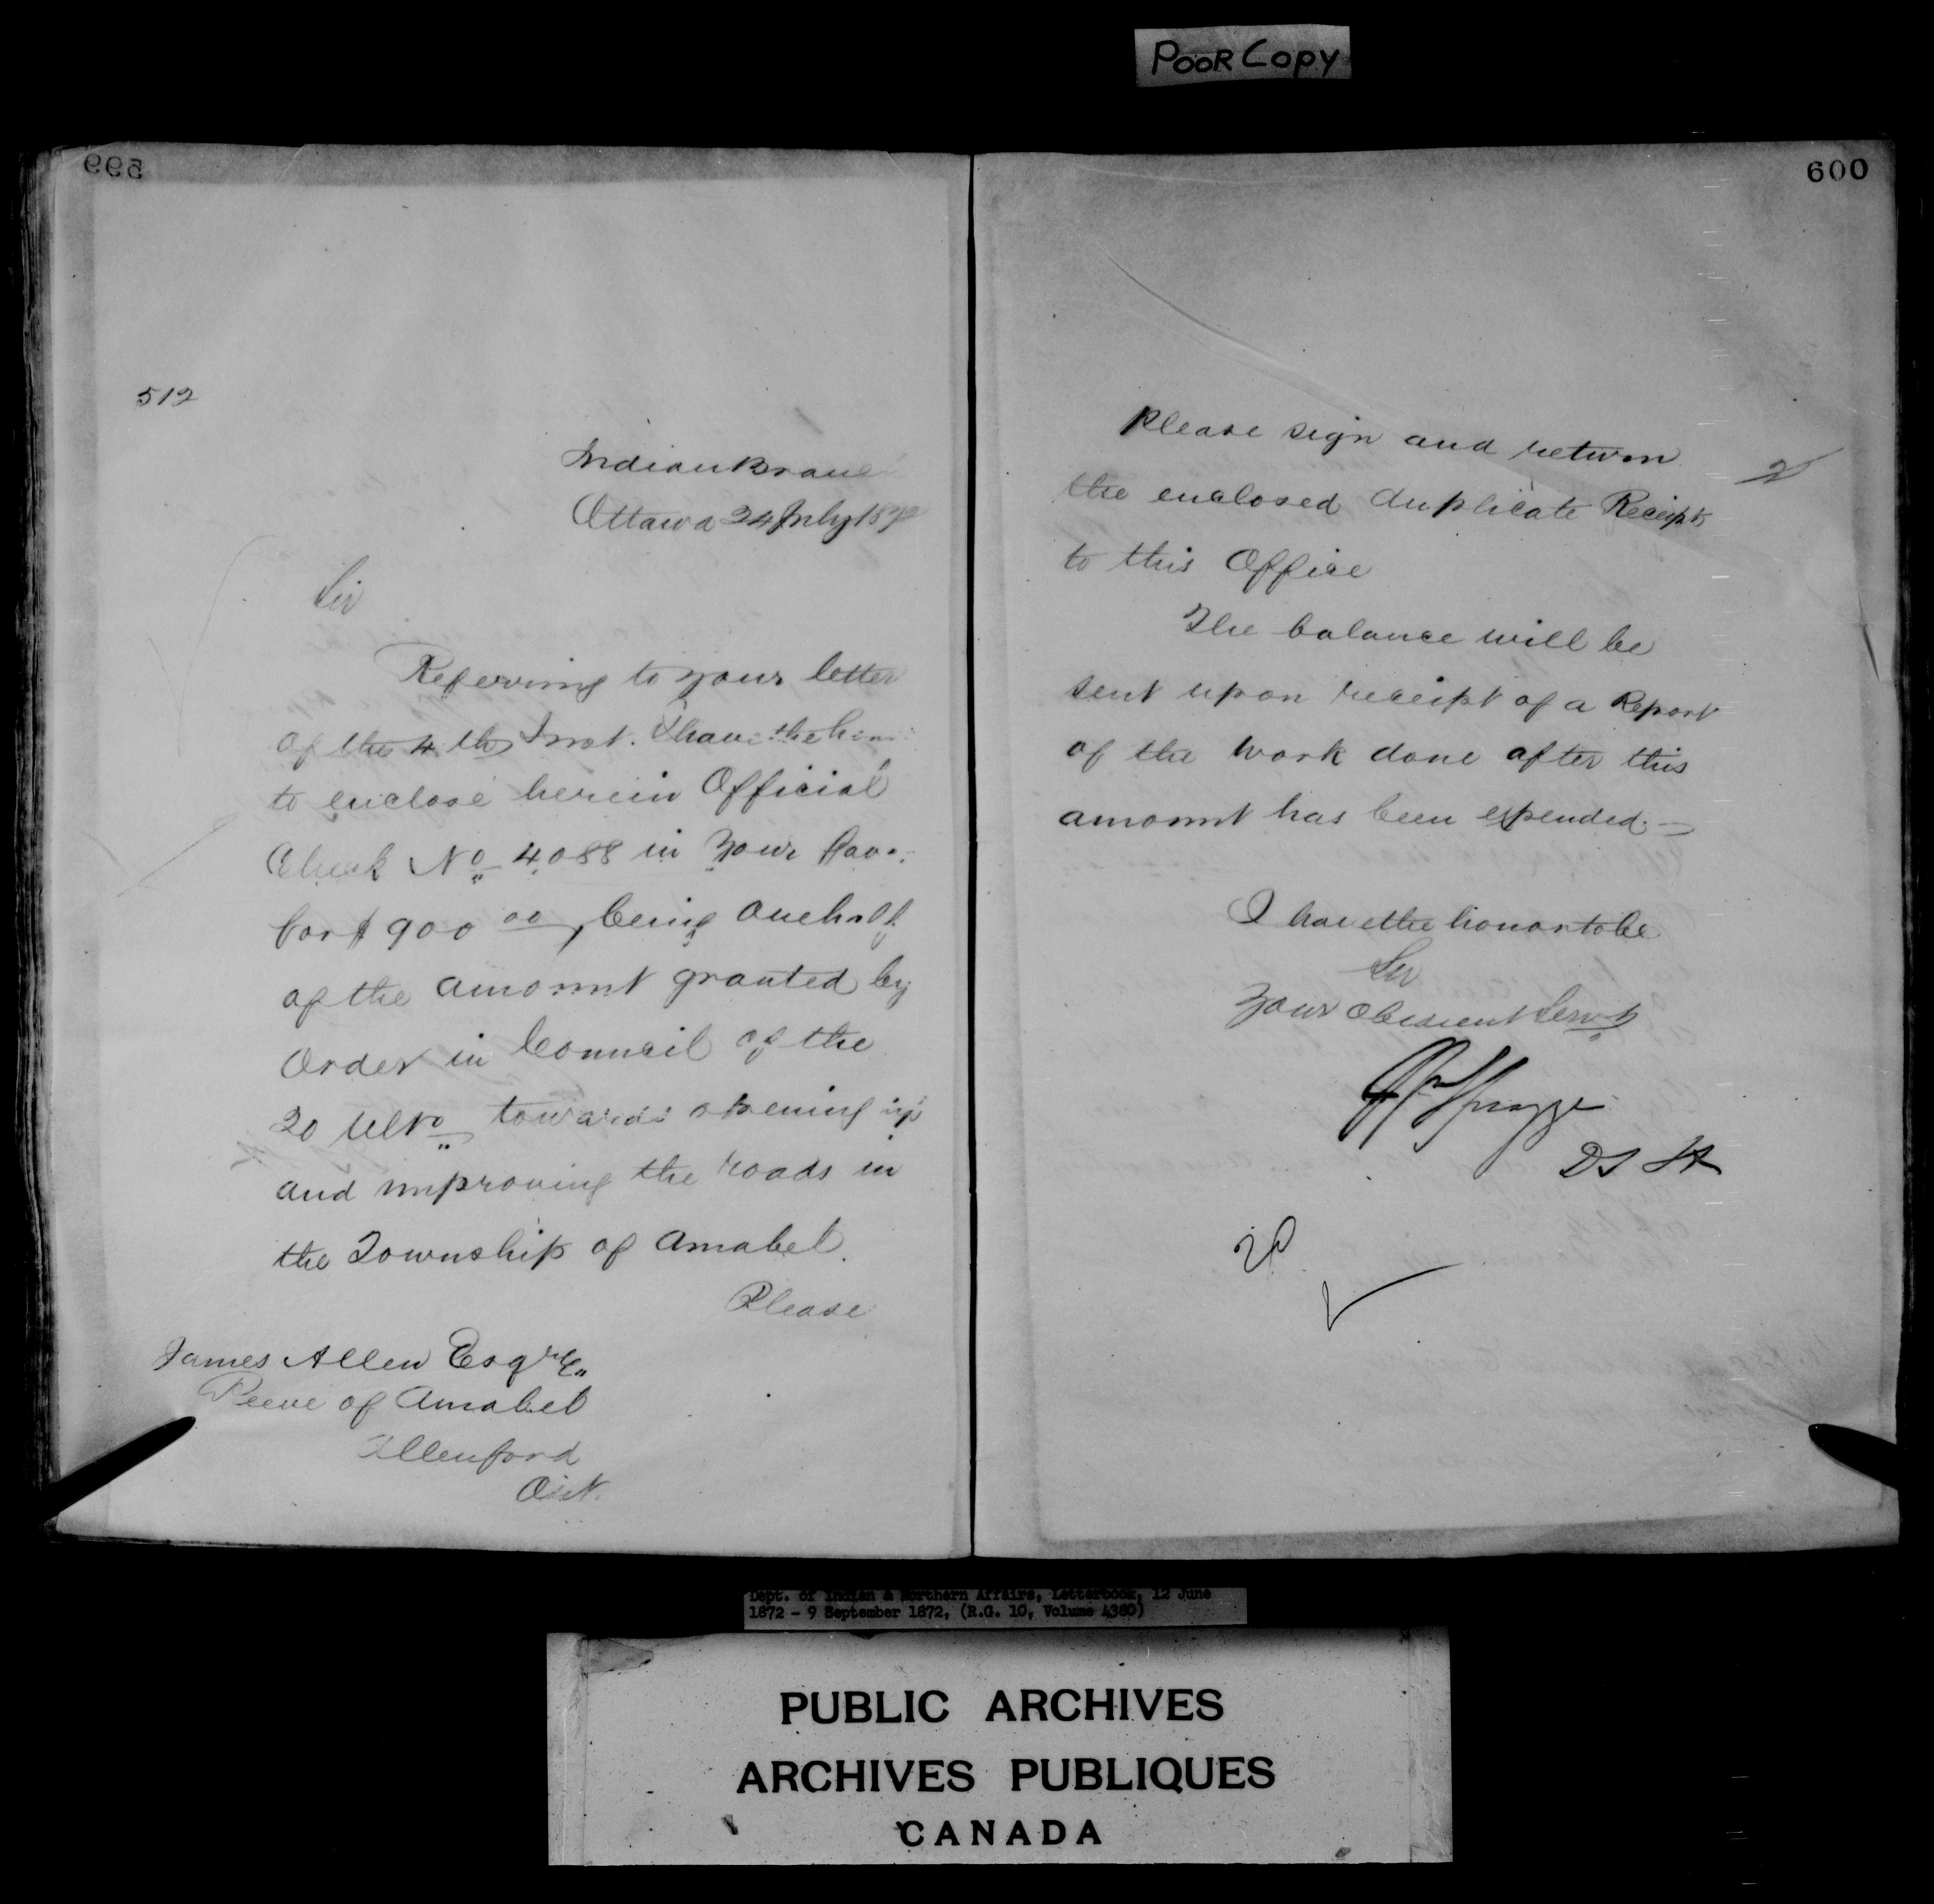 POOR COPY
599
512
Indian Branch
Ottawa 24 July 1872
Sir
Referring to your letter
of the 4th Inst. I have the hon
to enclose herein Official
Check No 4088 in your favor
for $900 00, being one half
of the amount granted by
Order in Council of the
20 Ulto towards opening up
and improving the roads in
the Township of Amabel.
Please
James Allen Esqre
Reeve of Amabel
Allenford
Ont.
600
2
Please sign and return
the enclosed duplicate Receipts
to this Office
The balance will be
sent upon receipt of a Report
of the work done after this
amount has been expended.—
I have the honor to be
Sir
Your obedient Servt
Spragge
DS IA
Dept. of Indian & Northern Affairs, Letterbook, 12 June
1872 - 9 September 1872, (R.G. 10, Volume 4380)
PUBLIC ARCHIVES
ARCHIVES PUBLIQUES
CANADA